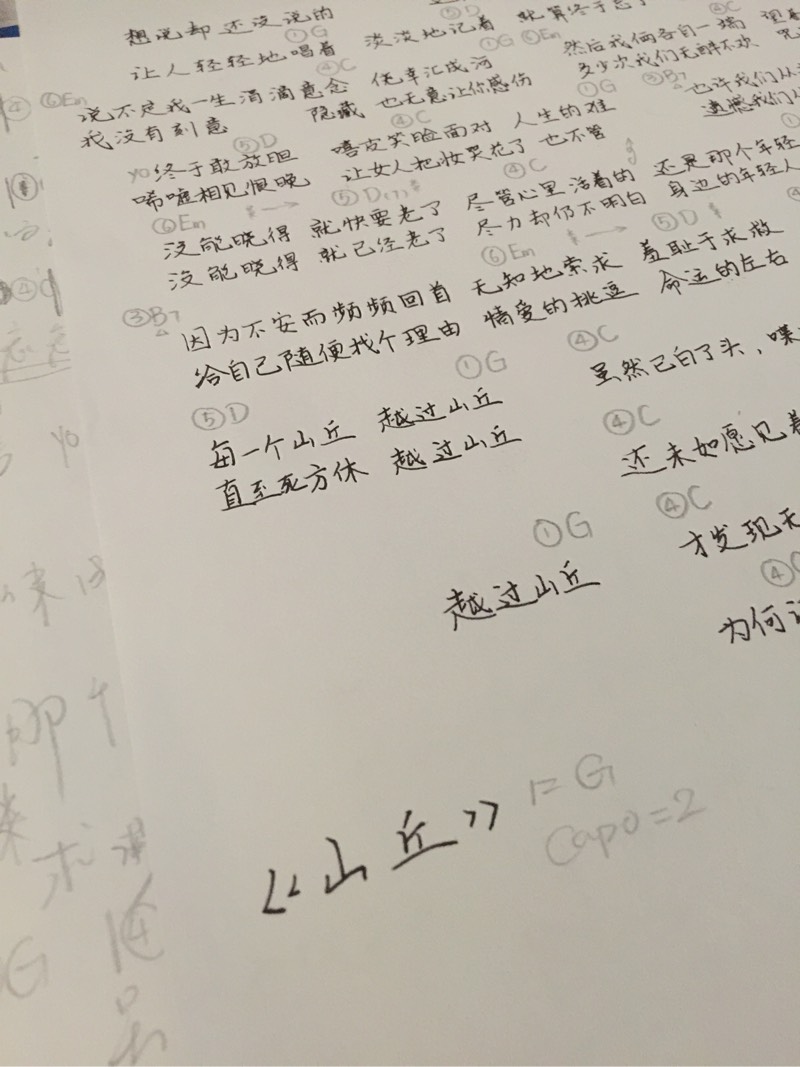 想说却还没说的
⑤D ④C
让人轻轻地唱着 淡淡地记着 就算终于忘了
①G ①G ⑥Em
⑥Em ④C 然后我俩各自一端
说不定我一生涓滴意念 侥幸汇成河 多少次我们无醉不欢
我没有刻意 隐藏 也无意让你感伤 ①G ③B7
⑤D ④C 也许我们从
yo终于敢放胆 嘻皮笑脸面对 人生的难 遗憾我们从
唏嘘相见恨晚 让女人把妆哭花了 也不管
⑥Em ⑤D ④C
没能晓得 就快要老了 尽管心里活着的 还是那个年轻
没能晓得 就已经老了 尽力却仍不明白 身边的年轻人
③B7 ⑥Em ⑤D
因为不安而频频回首 无知地索求 羞耻于求救
给自己随便找个理由 情爱的挑逗 命运的左右
⑤D ①G ④C
每一个山丘 越过山丘 虽然已白了头,喋
直至死方休 越过山丘 ④C
还未如愿见着
①G ④C
越过山丘 才发现无
④C
为何
《山丘》 1=G
Capo=2
那个
求
G ④